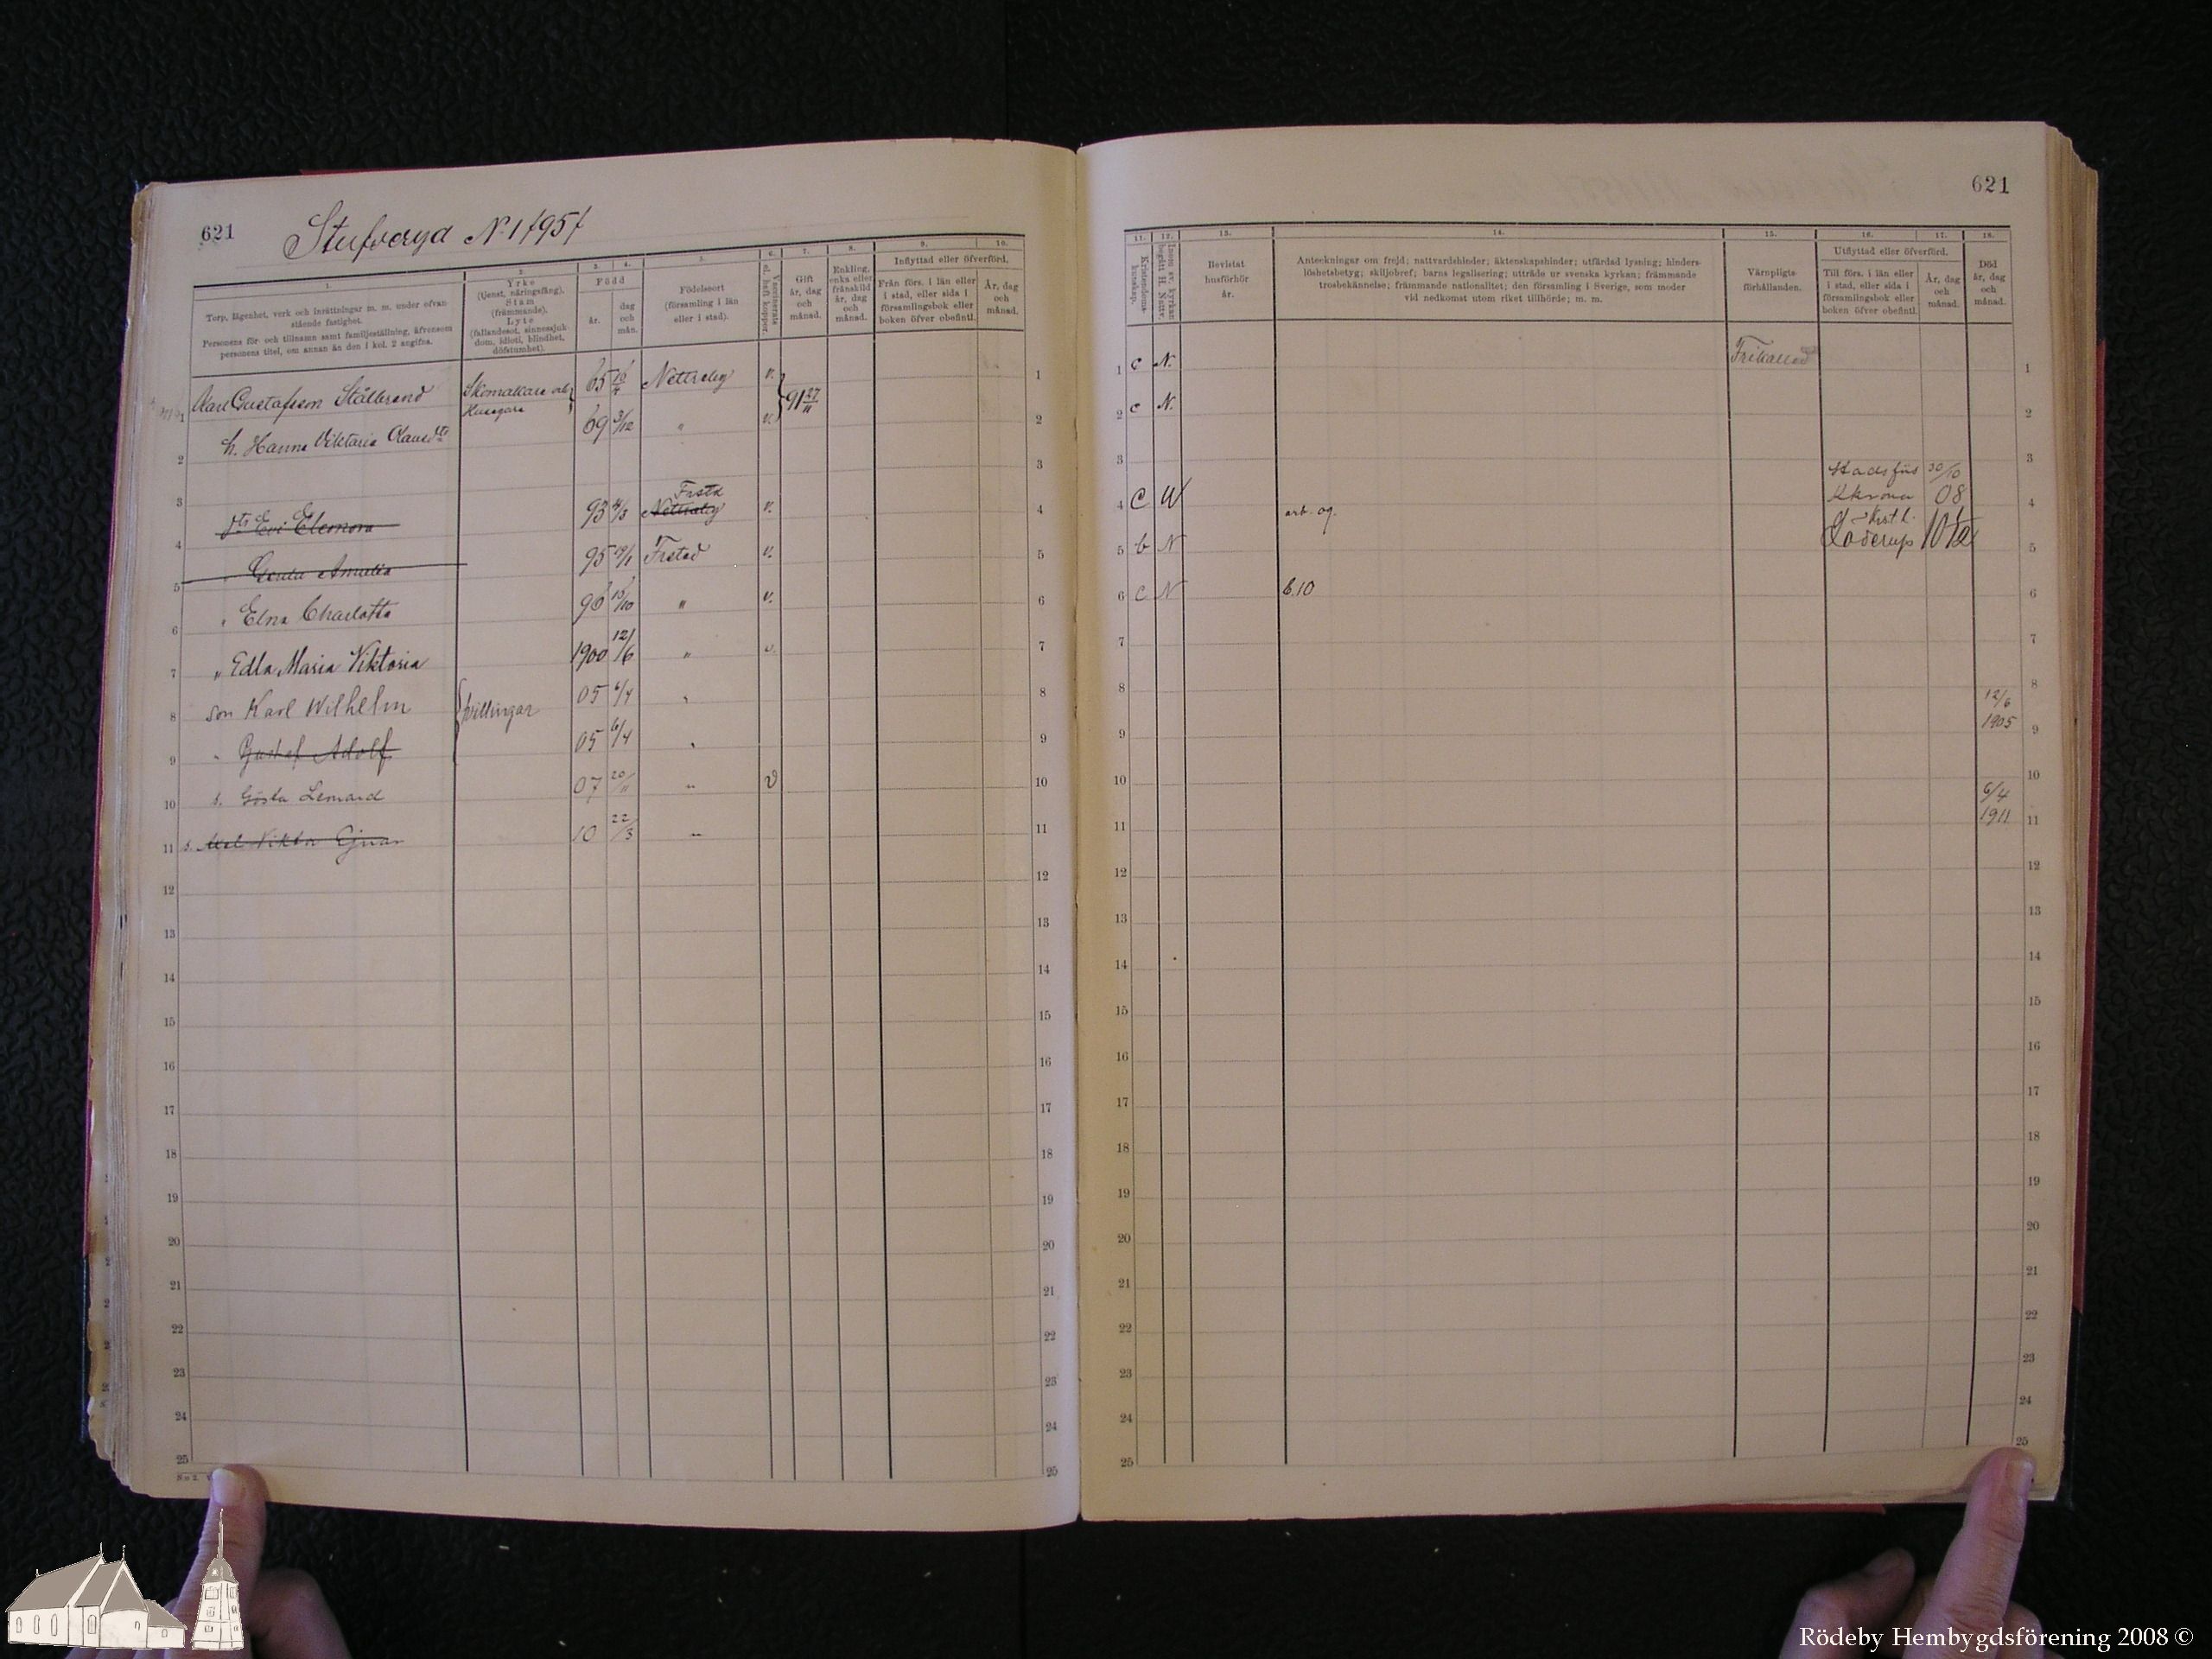 621
Stufveryd No 1 (95)
1. 2. 3. 4. 5. 6. 7. 8. 9. 10.
Torp, lägenhet, verk och inrättningar m. m. under ofvan
stående fastighet.
Personens för- och tillnamn samt familjeställning, äfvensom
personens titel, om annan än den i kol. 2 angifna.
Yrke
(tjenst, näringsfång).
Stam
(främmande).
Lyte
(fallandesot, sinnessjuk-
dom, idioti, blindhet,
döfstumhet).
Född
år.
dag
och
mån.
Födelseort
(församling i län
eller i stad).
Vaccinerats
el. haft koppor.
Gift
år, dag
och
månad.
Enkling,
enka eller
frånskild
år, dag
och
månad.
Inflyttad eller öfverförd.
Från förs. i län eller
i stad, eller sida i
församlingsbok eller
boken öfver obefintl.
År, dag
och
månad.
1 Karl Gustafsson Stålbrand Skomakare 65 Nettraby v. 91 27/11 1
Husägare
2 h. Hanna Viktoria Olausdtr 69 3/12 " v. 2
3 3
Frstd
4 dtr Evi Eleonora 93 /3 Nettraby v. 4
5 " Gerda Amalia 95 /1 Frstad v. 5
6 " Elna Charlotta 98 /10 " v. 6
7 " Edla Maria Viktoria 1900 12/6 " v. 7
8 son Karl Wilhelm tvillingar 05 6/4 " 8
9 " Gustaf Adolf 05 6/4 " 9
10 s. Gösta Lennard 07 20/11 " v 10
11 s. Axel Viktor 10 22/3 " 11
12 12
13 13
14 14
15 15
16 16
17 17
18 18
19 19
20 20
21 21
22 22
23 23
24 24
25 25
621
11. 12. 13. 14. 15. 16. 17. 18.
Kristendoms-
kunskap.
Inom sv. kyrkan
begått H. Nattv.
Bevistat
husförhör
år.
Anteckningar om frejd; nattvardshinder; äktenskapshinder; utfärdad lysning; hinders-
löshetsbetyg; skiljobref; barns legalisering; utträde ur svenska kyrkan; främmande
trosbekännelse; främmande nationalitet; den församling i Sverige, som moder
vid nedkomst utom riket tillhörde; m. m.
Värnpligts-
förhållanden.
Utflyttad eller öfverförd.
Till förs. i län eller
i stad, eller sida i
församlingsbok eller
boken öfver obefintl.
År, dag
och
månad.
Död
år, dag
och
månad.
1 c N. Frikallad 1
2 c N. 2
3 Stadsförs 30/10 3
4 C N Kkrona 08 4
arb. og.
5 b N Löderup 10 5
6 c N b.10 6
7 7
8 12/6 8
9 1905 9
10 6/4 10
11 1911 11
12 12
13 13
14 14
15 15
16 16
17 17
18 18
19 19
20 20
21 21
22 22
23 23
24 24
25 25
Rödeby Hembygdsförening 2008 ©